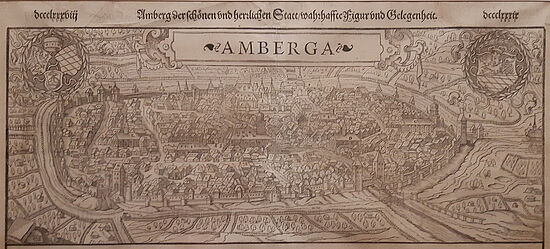 dccclxxxviij Amberg der schönen vnd herrlichen Statt/wahrhaffte Figur vnd Gelegenheit. dccclxxxix
AMBERGA